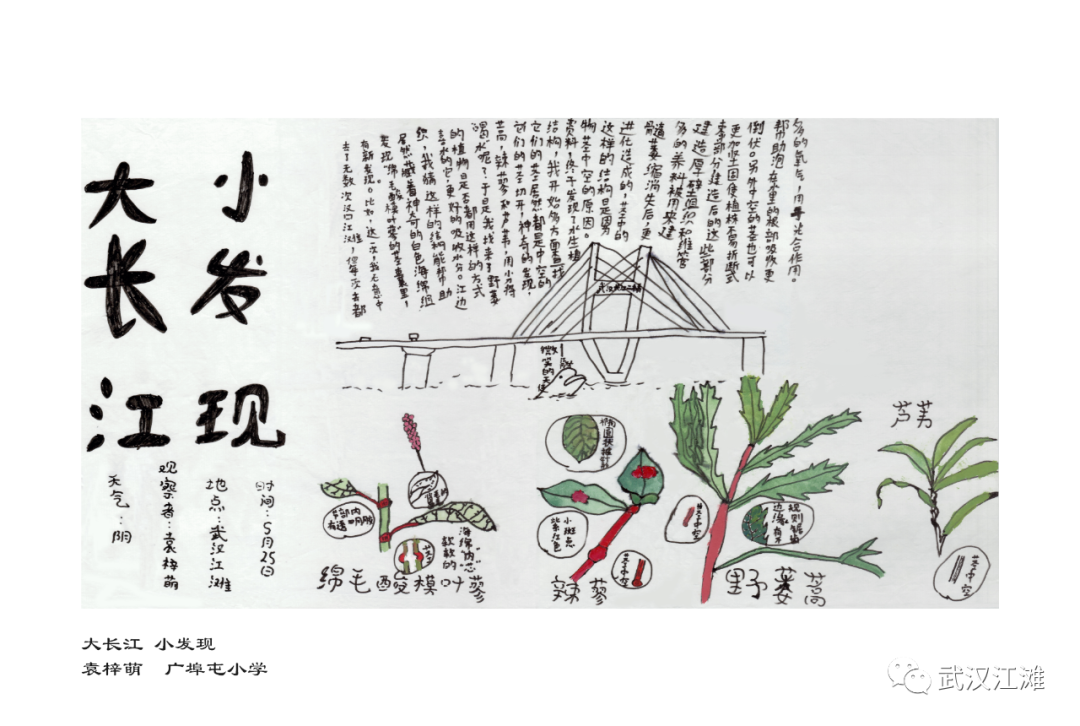 大长江
小发现
时间：5月25日
地点：武汉江滩
观察者：袁梓萌
天气：阴
去了无数次汉口江滩，但每次去都
有新发现。比如，这一次，我无意中
发现“绵毛酸模叶蓼”的茎囊里，
居然藏着神奇的白色海绵组
织，我猜这样的结构能帮助
喜水的它，更好的吸收水分。江边
的植物是否都用这样的方式
喝水呢？于是我找来了野蒌
蒿，辣蓼和芦苇，用小刀将
它们的茎切开，神奇的发现，
它们的茎居然都是中空的
结构，我开始多方面查找
资料，终于发现了水生植
物茎中空的原因。
这样的结构是因为
进化造成的，茎中的
萎缩消失后，更
多的养料被用来建
建造厚壁组织和维管
束部分建造后的这些部分
更加坚固使植株不易折断或
倒伏。另外中空的茎也可以
帮助泡在水里的根部吸收更
多的氧气，用于光合作用。
武汉长江二桥
微笑的天使
江豚
节部内有透明膜
茎
海绵“内芯”
软软的
绵毛酸模叶蓼
椭圆披针形
小斑点
紫红色
茎中空
辣蓼
茎中空
边缘有不规则锯齿
野蒌蒿
芦苇
茎中空
大长江 小发现
袁梓萌 广埠屯小学
武汉江滩